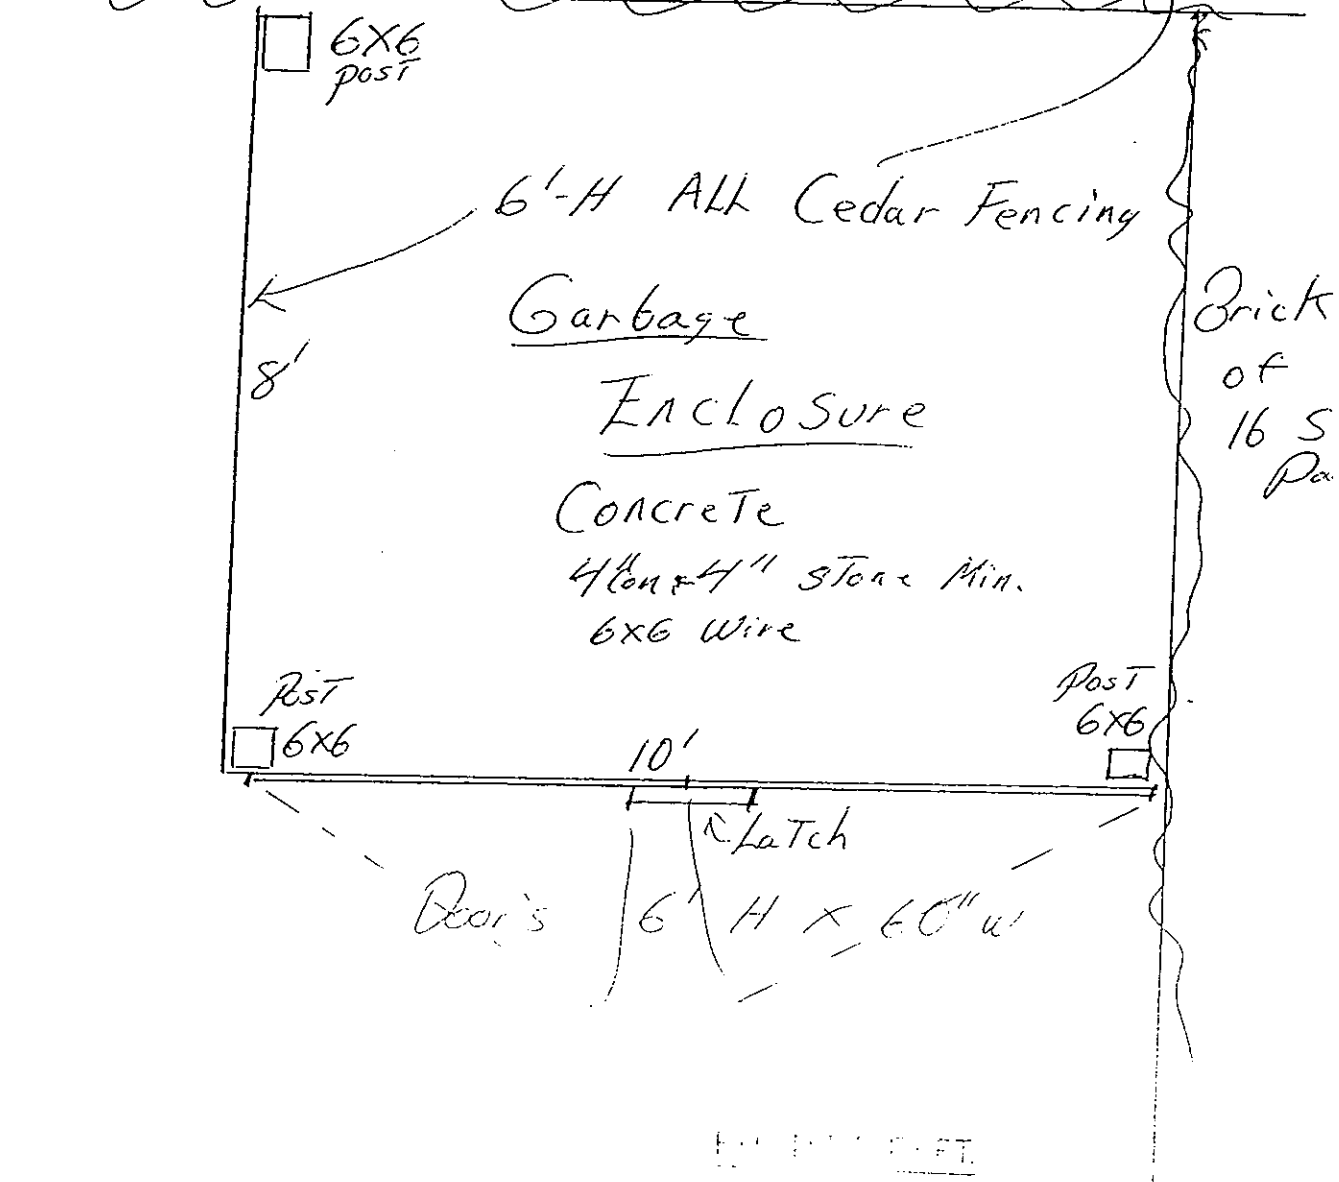 6X6
post
6'-H All Cedar Fencing
Garbage
Enclosure
8'
Concrete
4" on 4" stone Min.
6x6 Wire
Brick
of
16
Post
6x6
Post
6x6
10'
Latch
Door's 6' H x 60" w